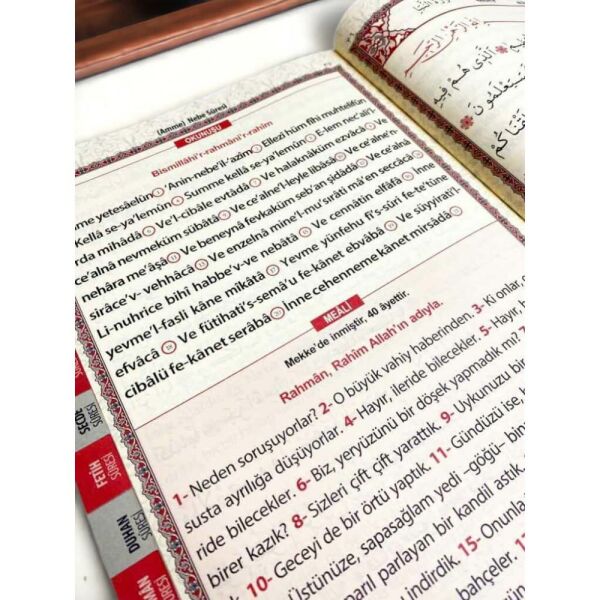 (Amme) Nebe Sûresi
OKUNUŞU
Bismillâhi'r-rahmâni'r-rahim
mme yetesâelûn 1 'Anin-nebe'il-'azîm 2 Ellezî hüm fîhi muhtelifûn
Kellâ se-ya'lemûn 4 Summe kellâ se-ya'lemûn 5 E-lem nec'ali'l-
rda mihâdâ 6 Ve'l-cibâle evtâdâ 7 Ve halaknâküm ezvâcâ 8 Ve
ce'alnâ nevmeküm sübâtâ 9 Ve ce'alne'l-leyle libâsâ 10 Ve ce'alnâ
nehâra me'âşâ 11 Ve beneynâ fevkaküm seb'an şidâdâ 12 Ve ce'alnâ
sirâce'v- vehhâcâ 13 Ve enzelnâ mine'l-mu'sırâti mâ'en seccâcâ 14
Li-nuhrice bihî habbe'v-ve nebâtâ 15 Ve cennâtin elfâfâ 16 İnne
yevme'l-fasli kâne mîkâtâ 17 Yevme yünfehu fi's-sûri fe-te'tûne
efvâcâ 18 Ve fütihati's-semâ'u fe-kânet ebvâbâ 19 Ve süyyirati'l-
cibâlü fe-kânet serâbâ 20 İnne cehenneme kânet mirsâdâ 21
MEALİ
Mekke'de inmiştir, 40 âyettir.
Rahmân, Rahim Allah'ın adıyla.
1- Neden soruşuyorlar? 2- O büyük vahiy haberinden. 3- Ki onlar,
susta ayrılığa düşüyorlar. 4- Hayır, ileride bilecekler. 5- Hayır,
ride bilecekler. 6- Biz, yeryüzünü bir döşek yapmadık mı?
birer kazık? 8- Sizleri çift çift yarattık. 9- Uykunuzu bir
10- Geceyi de bir örtü yaptık. 11- Gündüzü ise,
Üstünüze, sapasağlam yedi –göğü– bin
parıl parlayan bir kandil astık.
indirdik. 15- Onunla
bahçeler.
SECDE
SÛRESİ
FETİH
SÛRESİ
DUHAN
SÛRESİ
SÛRESİ
ٱلَّذِى هُمْ فِيهِ
سَيَعْلَمُونَ